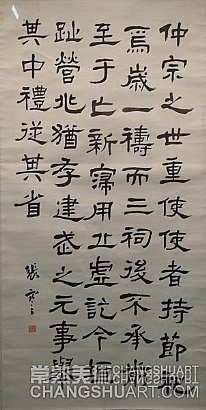 仲宗之世重使使者持節祀
焉歲一禱而三祠後不承前
至于亡新寖用丘虛訖今垣
趾營兆猶存建武之元事舉
其中禮從其省
張
常熟美术
CHANGSHUART
CHANGSHUART.COM